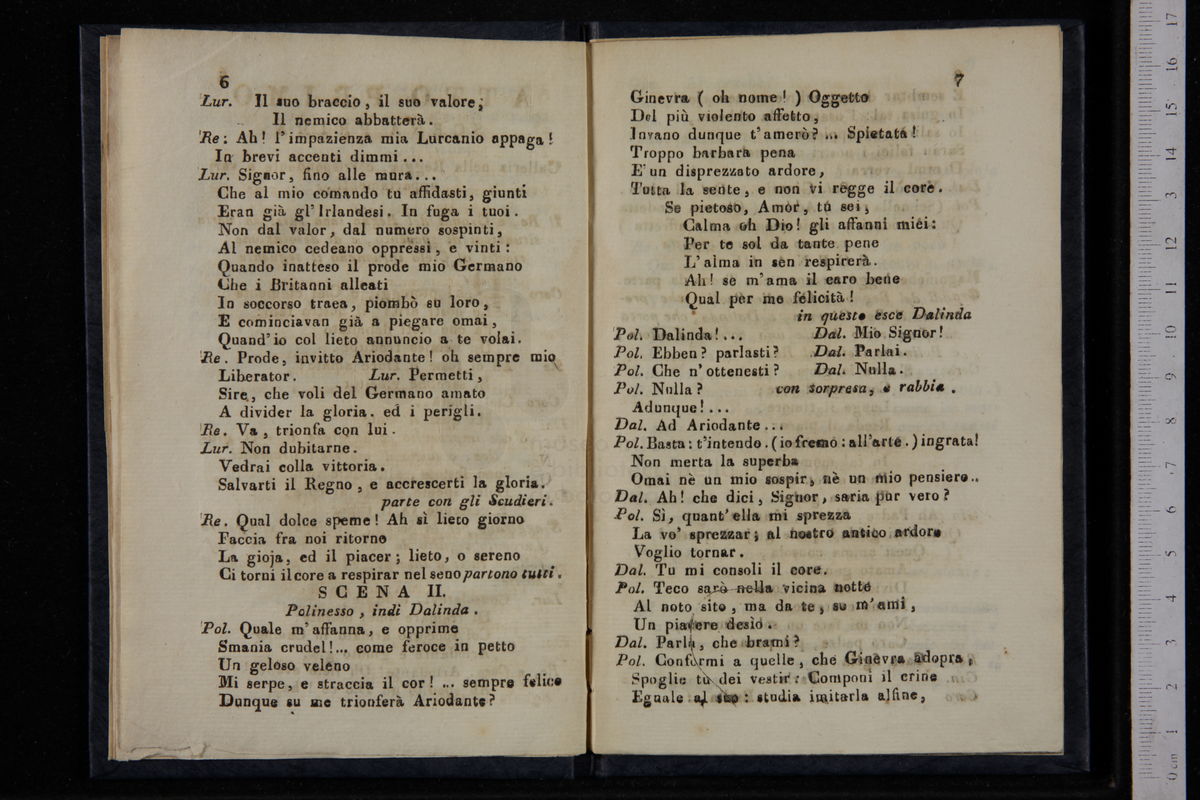 6
Lur. Il suo braccio, il suo valore;
Il nemico abbatterà.
Re: Ah! l'impazienza mia Lurcanio appaga!
In brevi accenti dimmi...
Lur. Signor, fino alle mura...
Che al mio comando tu affidasti, giunti
Eran già gl'Irlandesi. In fuga i tuoi.
Non dal valor, dal numero sospinti,
Al nemico cedeano oppressi, e vinti:
Quando inatteso il prode mio Germano
Che i Britanni alleati
In soccorso traea, piombò su loro,
E cominciavan già a piegare omai,
Quand'io col lieto annuncio a te volai.
Re. Prode, invitto Ariodante! oh sempre mio
Liberator. Lur. Permetti,
Sire, che voli del Germano amato
A divider la gloria. ed i perigli.
Re. Va, trionfa con lui.
Lur. Non dubitarne.
Vedrai colla vittoria.
Salvarti il Regno, e accrescerti la gloria.
parte con gli Scudieri.
Re. Qual dolce speme! Ah sì lieto giorno
Faccia fra noi ritorno
La gioja, ed il piacer; lieto, o sereno
Ci torni il core a respirar nel seno partono tutti.
SCENA II.
Polinesso, indi Dalinda.
Pol. Quale m'affanna, e opprime
Smania crudel!... come feroce in petto
Un geloso veleno
Mi serpe, e straccia il cor! ... sempre felice
Dunque su me trionferà Ariodante?
7
Ginevra ( oh nome! ) Oggetto
Del più violento affetto,
Invano dunque t'amerò? ... Spietata!
Troppo barbara pena
E' un disprezzato ardore,
Tutta la sente, e non vi regge il core.
Se pietoso, Amor, tu sei,
Calma oh Dio! gli affanni miei:
Per te sol da tante pene
L'alma in sen respirerà.
Ah! se m'ama il caro bene
Qual per me felicità!
in questo esce Dalinda
Pol. Dalinda!... Dal. Mio Signor!
Pol. Ebben? parlasti? Dal. Parlai.
Pol. Che n'ottenesti? Dal. Nulla.
Pol. Nulla? con sorpresa, e rabbia.
Adunque!...
Dal. Ad Ariodante...
Pol. Basta: t'intendo. (io fremo: all'arte.) ingrata!
Non merta la superba
Omai nè un mio sospir, nè un mio pensiero..
Dal. Ah! che dici, Signor, saria pur vero?
Pol. Sì, quant'ella mi sprezza
La vo' sprezzar; al nostro antico ardore
Voglio tornar.
Dal. Tu mi consoli il core.
Pol. Teco sarò nella vicina notte
Al noto sito, ma da te, se m'ami,
Un piacere desìo.
Dal. Parla, che brami?
Pol. Conformi a quelle, che Ginevra adopra,
Spoglie tu dei vestir: Componi il crine
Eguale al suo: studia imitarla alfine,